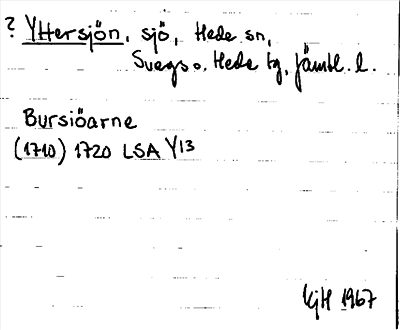 ? Yttersjön, sjö, Hede sn,
Svegs o. Hede tg, Jämtl. l.
Bursiöarne
(1710) 1720 LSA Y13
KjH 1967